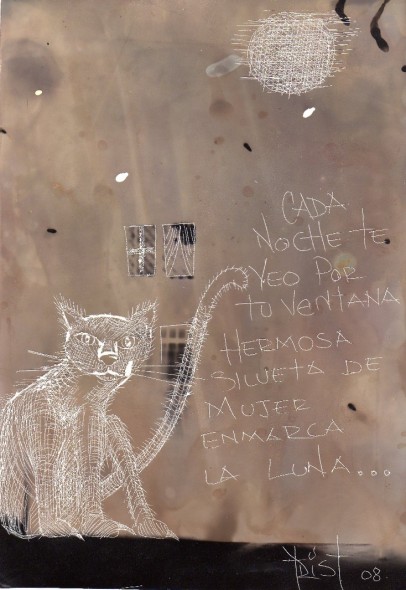 CADA
NOCHE TE
VEO POR
TU VENTANA
HERMOSA
SILUETA DE
MUJER
ENMARCA
LA LUNA...
08